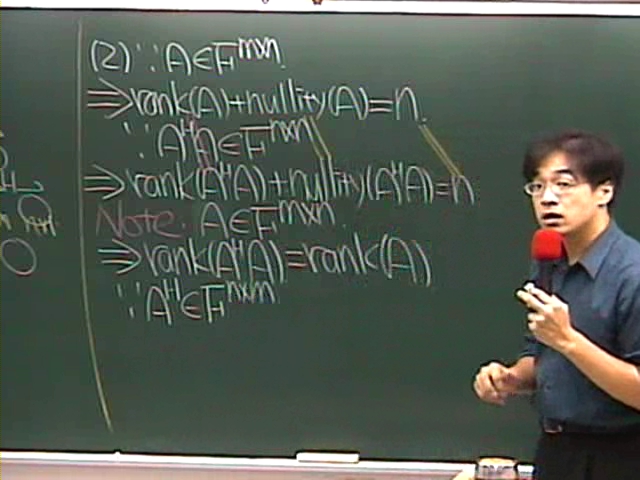 (2) ∵ A∈F^{m×n}.
⇒rank(A)+nullity(A)=n.
∵ A^HA∈F^{n×n}
⇒rank(A^HA)+nullity(A^HA)=n
Note. A∈F^{m×n}.
⇒rank(A^HA)=rank(A)
∵A^H∈F^{n×m}